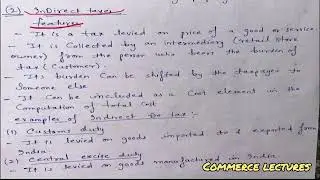 (2) InDirect taxes
features
- It is a tax levied on price of a good or service
- It is Collected by an intermediary (retail store
owner) from the person who bears the burden of
tax (Customer).
- Its burden Can be shifted by the taxpayer to
Someone else
- It Can be included as a Cost element in the
Computation of total Cost
examples of Indirect tax:-
(1) Customs duty
- It is levied on goods imported to & exported from
India
(2) Central excise duty
- It is levied on goods manufactured in India
COMMERCE LECTURES